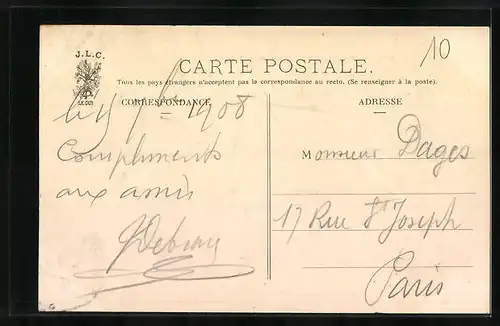 J.L.C.
10
CARTE POSTALE.
Tous les pays étrangers n'acceptent pas la correspondance au recto. (Se renseigner à la poste).
CORRESPONDANCE
ADRESSE
1908
Compliments
aux amis
Debray
Monsieur Dages
17 Rue St Joseph
Paris